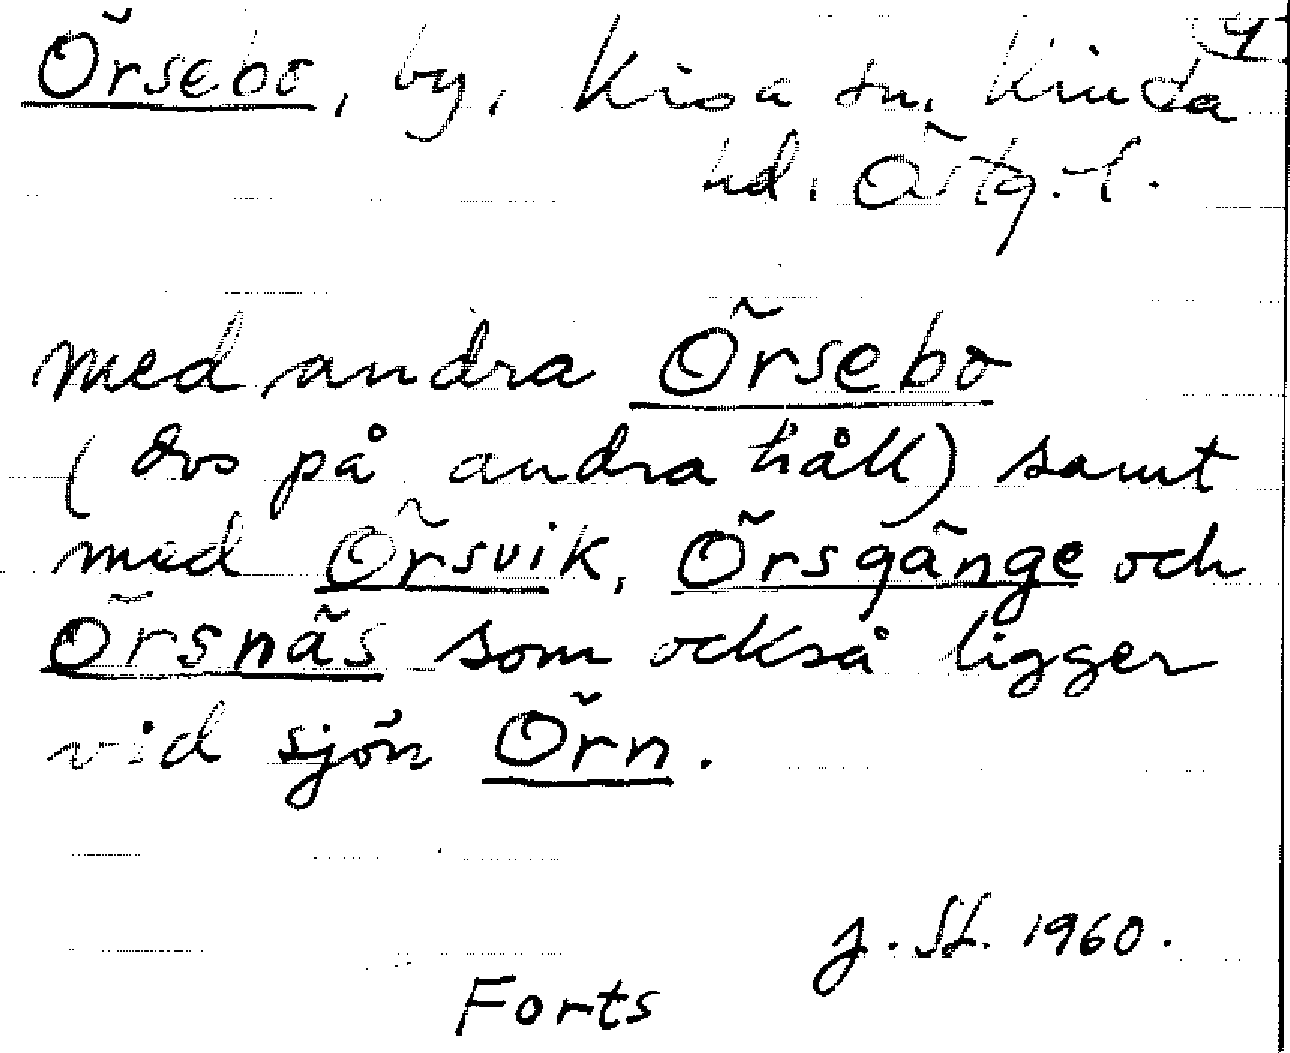 4
Örsebo, by, Kisa sn. Kinda
hd. Östg.-l.
med andra Örsebo
(dvs på andra håll) samt
med Örsvik, Örsgänge och
Örsnäs som också ligger
vid sjön Örn.
J. St. 1960.
Forts